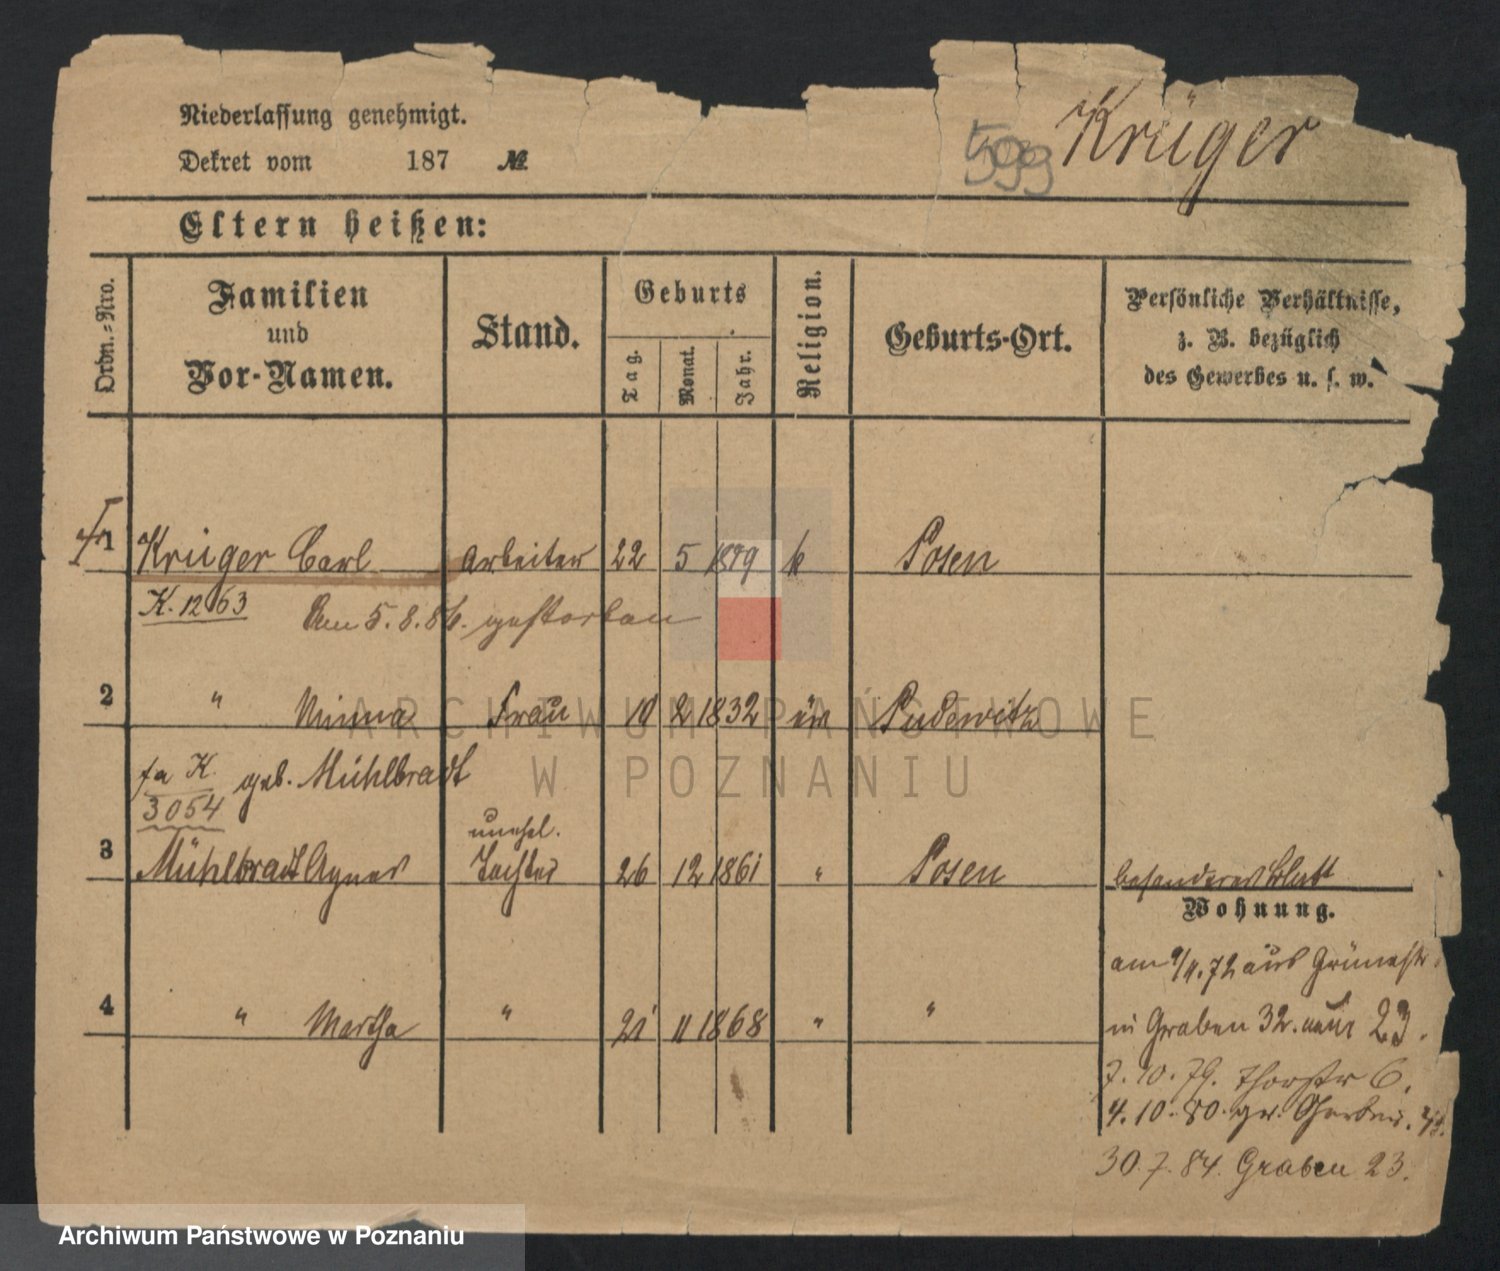 Niederlassung genehmigt.
599 Krüger
Dekret vom 187 №
Eltern heißen:
Ordn.-Nro. Familien und Vor-Namen. Stand. Geburts Tag. Monat. Jahr. Religion. Geburts-Ort. Persönliche Verhältnisse, z. B. bezüglich des Gewerbes u. s. w.
1 Krüger Carl Arbeiter 22 5 k Posen
K. 1263 Am 5.8.86. gestorben
2 " Minna Frau 19 2 1832 Pudewitz
fa K. geb. Mühlbradt
3054
unehl.
3 Mühlbradt Agnes Tochter 26 12 1861 " Posen besonderes Blatt
Wohnung.
am 9/11.72 aus Grünestr.
4 " Martha " 21 11 1868 " "
in Graben 32. nun 23.
7.10.79. Thorstr 6.
4.10.80. gr. Gerber.
30.7.84. Graben 23.
ARCHIWUM PAŃSTWOWE
W POZNANIU
Archiwum Państwowe w Poznaniu